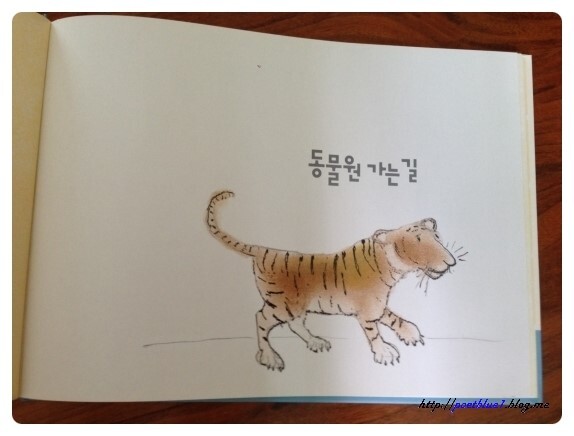 동물원 가는길
http://poetblue1.blog.me